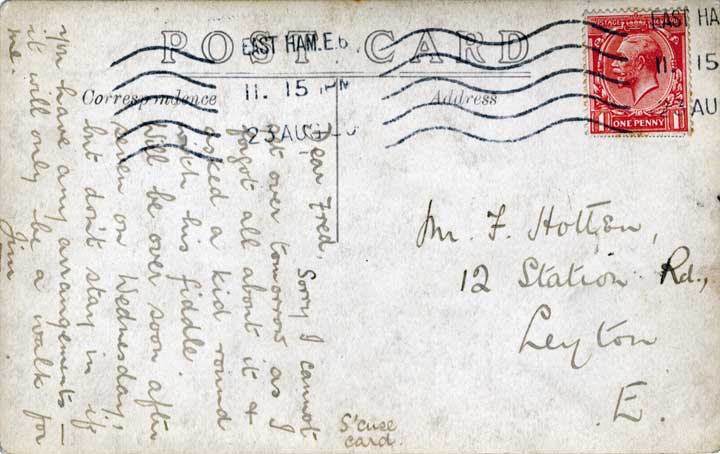 POST CARD
EAST HAM. E.6.
11. 15 PM
23 AUG
EAST HA
11. 15
23 AU
POSTAGE REVENUE
1 ONE PENNY 1
Correspondence
Address
Dear Fred,
Sorry I cannot
get over tomorrow as I
forgot all about it &
asked a kid round
with his fiddle.
Will be over soon after
seven on Wednesday;
but don't stay in if
you have any arrangements —
it will only be a walk for
me.
Jim
S'cuse
card.
Mr. F. Hotten,
12 Station Rd.,
Leyton
E.